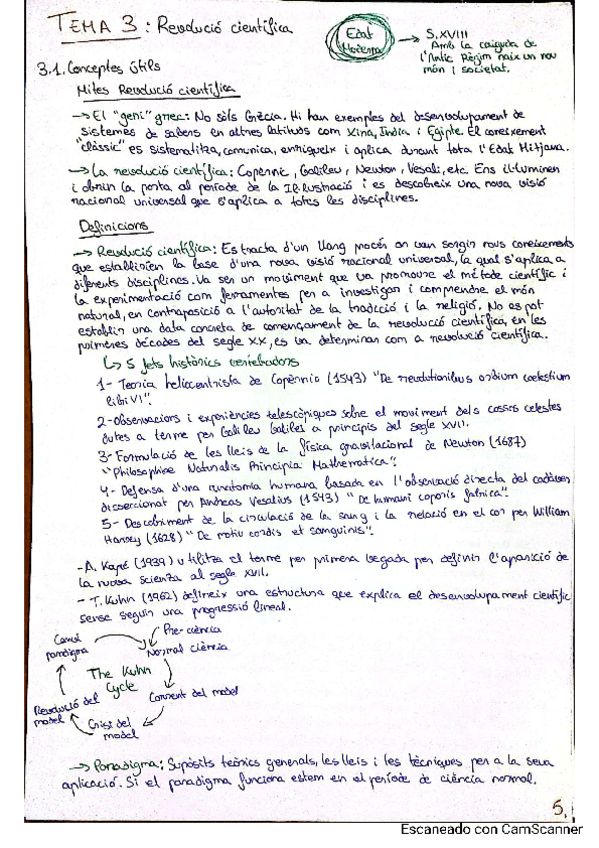 TEMA 3: Revolució científica
Edat Moderna → S.XVIII
Amb la caiguda de
l'Antic Règim naix un nou
món i societat.
3.1. Conceptes útils
Mites Revolució científica
→ El "geni" grec: No sòls Grècia. Hi han exemples del desenvolupament de
sistemes de sabers en altres latituds com Xina, Índia i Egipte. El coneixement
"clàssic" es sistematitza, comunica, enriqueix i aplica durant tota l'Edat Mitjana.
→ La revolució científica: Copèrnic, Galileu, Newton, Vesali, etc. Ens il·luminen
i obrin la porta al període de la Il·lustració i es descobreix una nova visió
racional universal que s'aplica a totes les disciplines.
Definicions
→ Revolució científica: Es tracta d'un llarg procés on van sorgir nous coneixements
que establirien la base d'una nova visió racional universal, la qual s'aplica a
diferents disciplines. Va ser un moviment que va promoure el mètode científic i
la experimentació com ferramentes per a investigar i comprendre el món
natural, en contraposició a l'autoritat de la tradició i la religió. No es pot
establir una data concreta de començament de la revolució científica, en les
primeres dècades del segle XX, es va determinar com a revolució científica.
↳ 5 fets històrics vertebradors
1- Teoria heliocentrista de Copèrnic (1543) "De revolutionibus ordium coelestium
libri VI".
2- Observacions i experiències telescòpiques sobre el moviment dels cossos celestes
dutes a terme per Galileu Galilei a principis del segle XVII.
3- Formulació de les lleis de la física gravitacional de Newton (1687)
"Philosophiae Naturalis Principia Mathematica".
4- Defensa d'una anatomia humana basada en l'observació directa del cadàver
disseccionat per Andreas Vesalius (1543) "De humani coporis fabrica".
5- Descobriment de la circulació de la sang i la relació en el cor per William
Harvey (1628) "De motiu cordis et sanguinis".
- A. Koyré (1939) utilitza el terme per primera vegada per definir l'aparició de
la nuova scienza al segle XVII.
- T. Kuhn (1962) defineix una estructura que explica el desenvolupament científic
sense seguir una progressió lineal.
Canvi
paradigma
Pre-ciència
Normal ciència
The Kuhn
Cycle
del model
Revolució del
model
Crisi del
model
→ Paradigma: Supòsits teòrics generals, les lleis i les tècniques per a la seua
aplicació. Si el paradigma funciona estem en el període de ciència normal.
5.
Escaneado con CamScanner